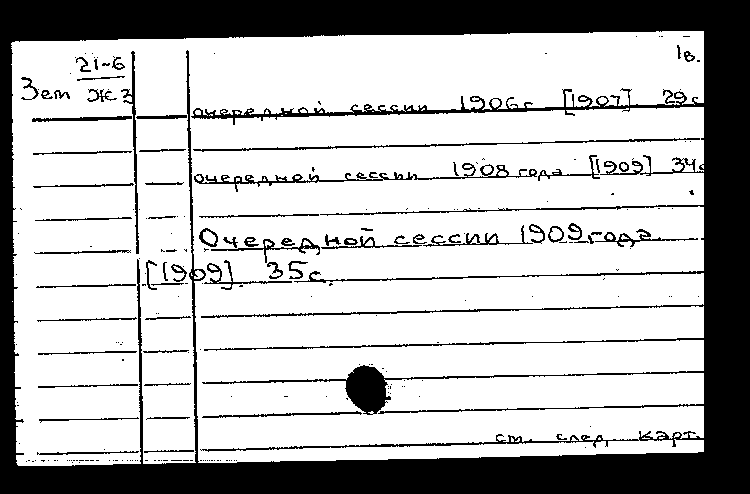 1в.
21-6
Зет ЖЗ
очередной сессии 1906г. [1907]. 29с
очередной сессии 1908 года [1909] 34с
Очередной сессии 1909 года.
[1909]. 35с.
см. след. карт.